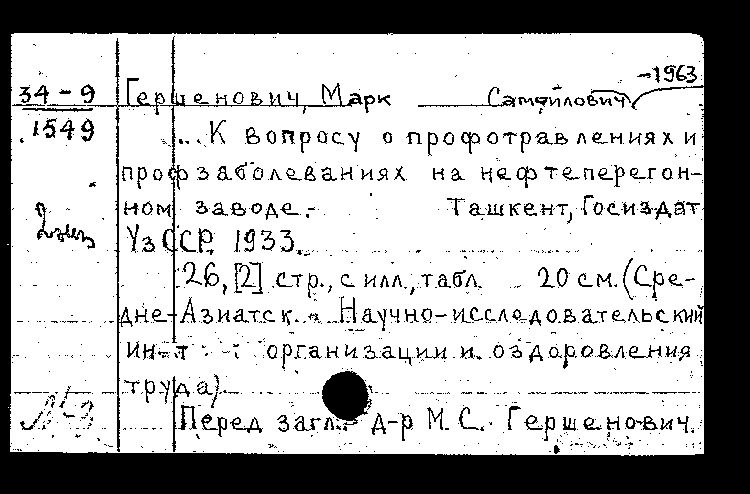 -1963
34-9 Гершенович, Марк Самойлович
1549 ...К вопросу о профотравлениях и
профзаболеваниях на нефтеперегон-
ном заводе.- Ташкент, Госиздат
УзССР. 1933.
26, [2] стр., с илл., табл. 20 см. (Сре-
дне-Азиатск. Научно-исследовательский
ин-т организации и оздоровления
труда).
Перед загл.: д-р М. С. Гершенович.